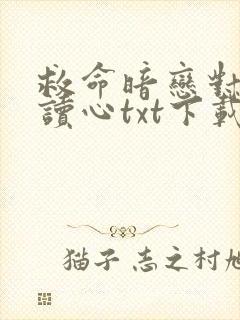 救命暗戀對
讀心txt下載
猫子 志之村旭